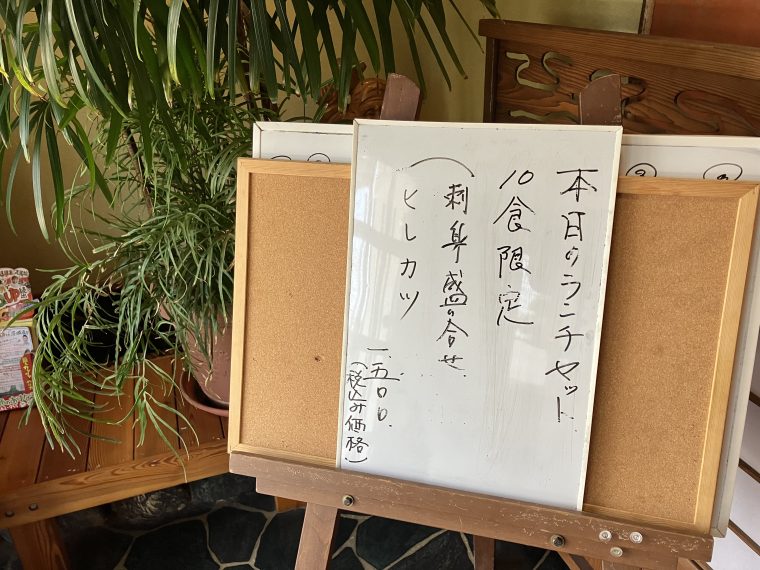 本日のランチセット
10食限定
刺身盛り合せ
ヒレカツ
一、五〇〇
(税込み価格)